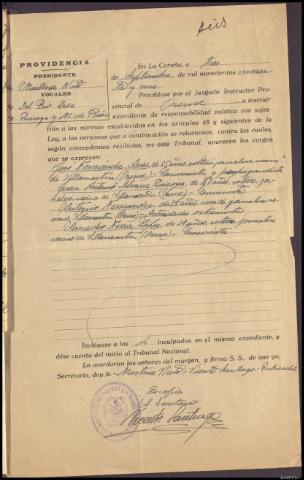 seis
PROVIDENCIA
PRESIDENTE
Sr. Martínez Nieto
VOCALES
Sr. Del Río
Sr.
En La Coruña, a tres
de Septiembre de mil novecientos cuaren-
ta y uno.
Procédase por el Juzgado Instructor Pro-
vincial de Orense a instruir
expediente de responsabilidad política con suje-
ción a las normas establecidas en los artículos 45 y siguientes de la
Ley, a las personas que a continuación se relacionan, contra las cuales,
según antecedentes recibidos, en este Tribunal, aparecen los cargos
que se expresan:
José Fernández de 35 años, soltero, jornalero, vecino
de Villamartín (Orense) - Comunista y propagandista
Juan Antonio Álvarez de años, soltero,
vecino de Villamartín (Orense) - Comunista
Antonio Fernández de 28 años, casado, jornalero, ve-
cino Villamartín (Orense) - Actividades extremistas
Amadeo Neira López de 29 años, soltero, jornalero
vecino de Villamartín (Orense) - Comunista
Inclúyase a los inculpados en el mismo expediente, y
dése cuenta del inicio al Tribunal Nacional.
Lo acordaron los señores del margen, y firma S. S. de que yo,
Secretario, doy fe.- Martínez Nieto - Vicente Santiago - Rubricados
Es copia
El Secretario
Vicente Santiago